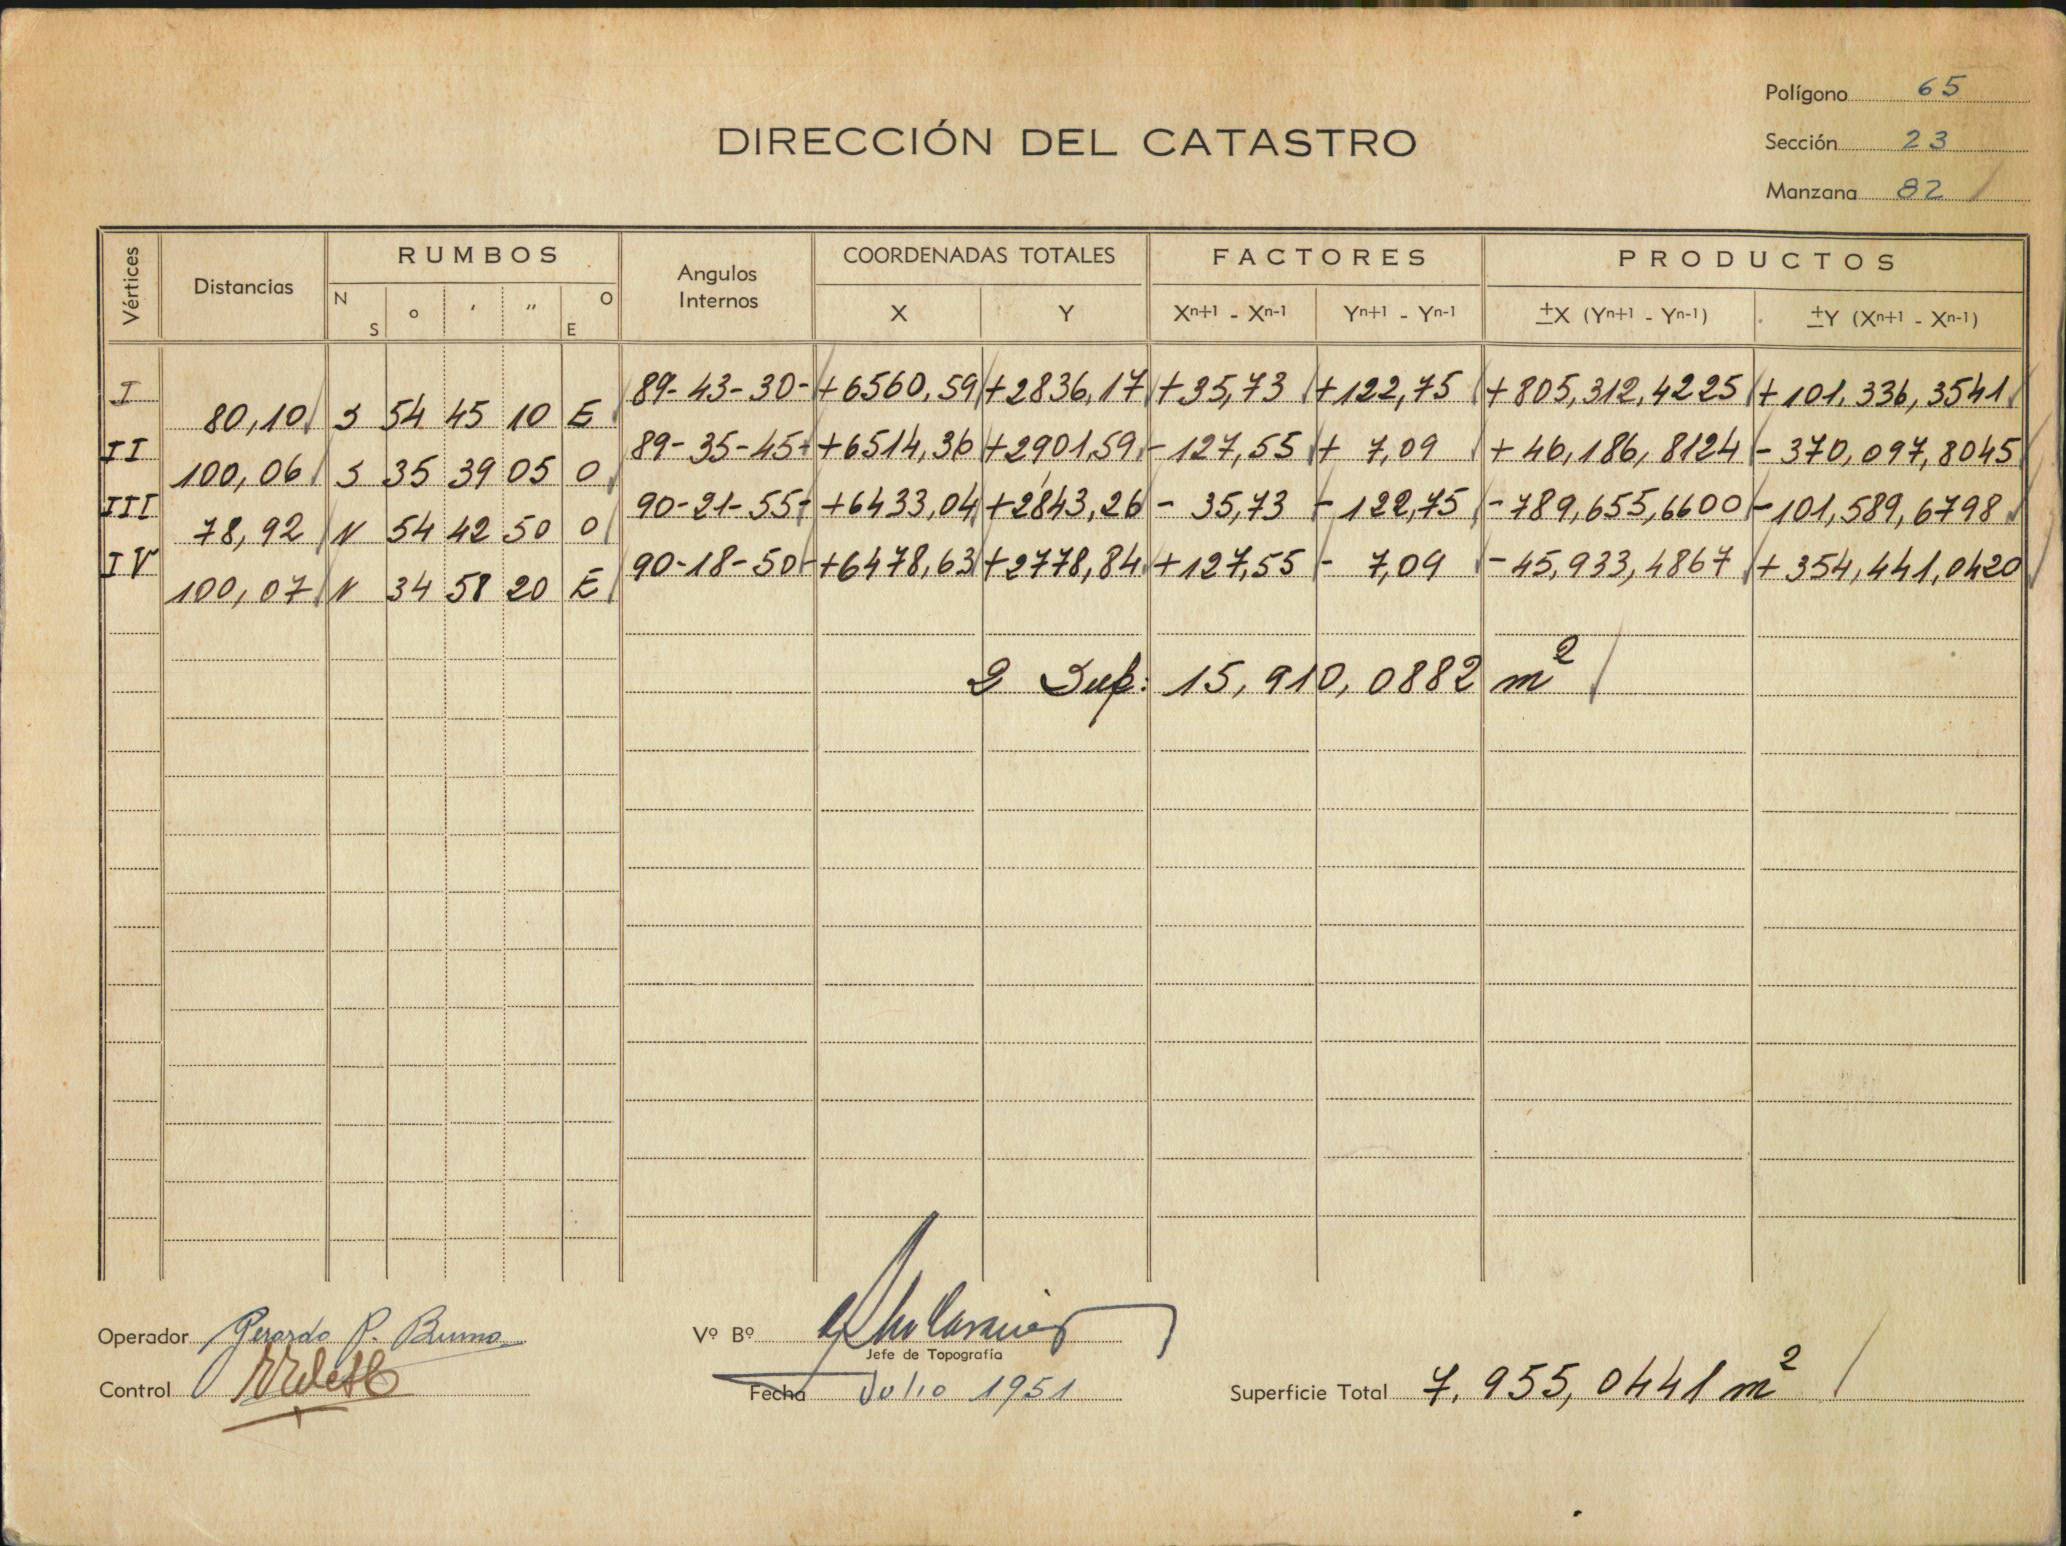 Polígono 65
DIRECCIÓN DEL CATASTRO
Sección 23
Manzana 82
Vértices Distancias RUMBOS Angulos Internos COORDENADAS TOTALES FACTORES PRODUCTOS
N S o ′ ″ O E X Y Xn+1 - Xn-1 Yn+1 - Yn-1 ±X (Yn+1 - Yn-1) ±Y (Xn+1 - Xn-1)
I 89-43-30- +6560,59 +2836,17 +35,73 +122,75 +805,312,4225 +101,336,3541
80,10 S 54 45 10 E
II 89-35-45- +6514,36 +2901,59 -127,55 + 7,09 +46,186,8124 -370,097,8045
100,06 S 35 39 05 O
III 90-21-55- +6433,04 +2843,26 - 35,73 -122,75 -789,655,6600 -101,589,6798
78,92 N 54 42 50 O
IV 90-18-50- +6478,63 +2778,84 +127,55 - 7,09 -45,933,4867 +354,441,0420
100,07 N 34 58 20 E
2 Sup: 15,910,0882 m²
Operador Gerardo P. Bruno Vº Bº
Jefe de Topografía
Control Fecha Julio 1951 Superficie Total 7,955,0441 m²